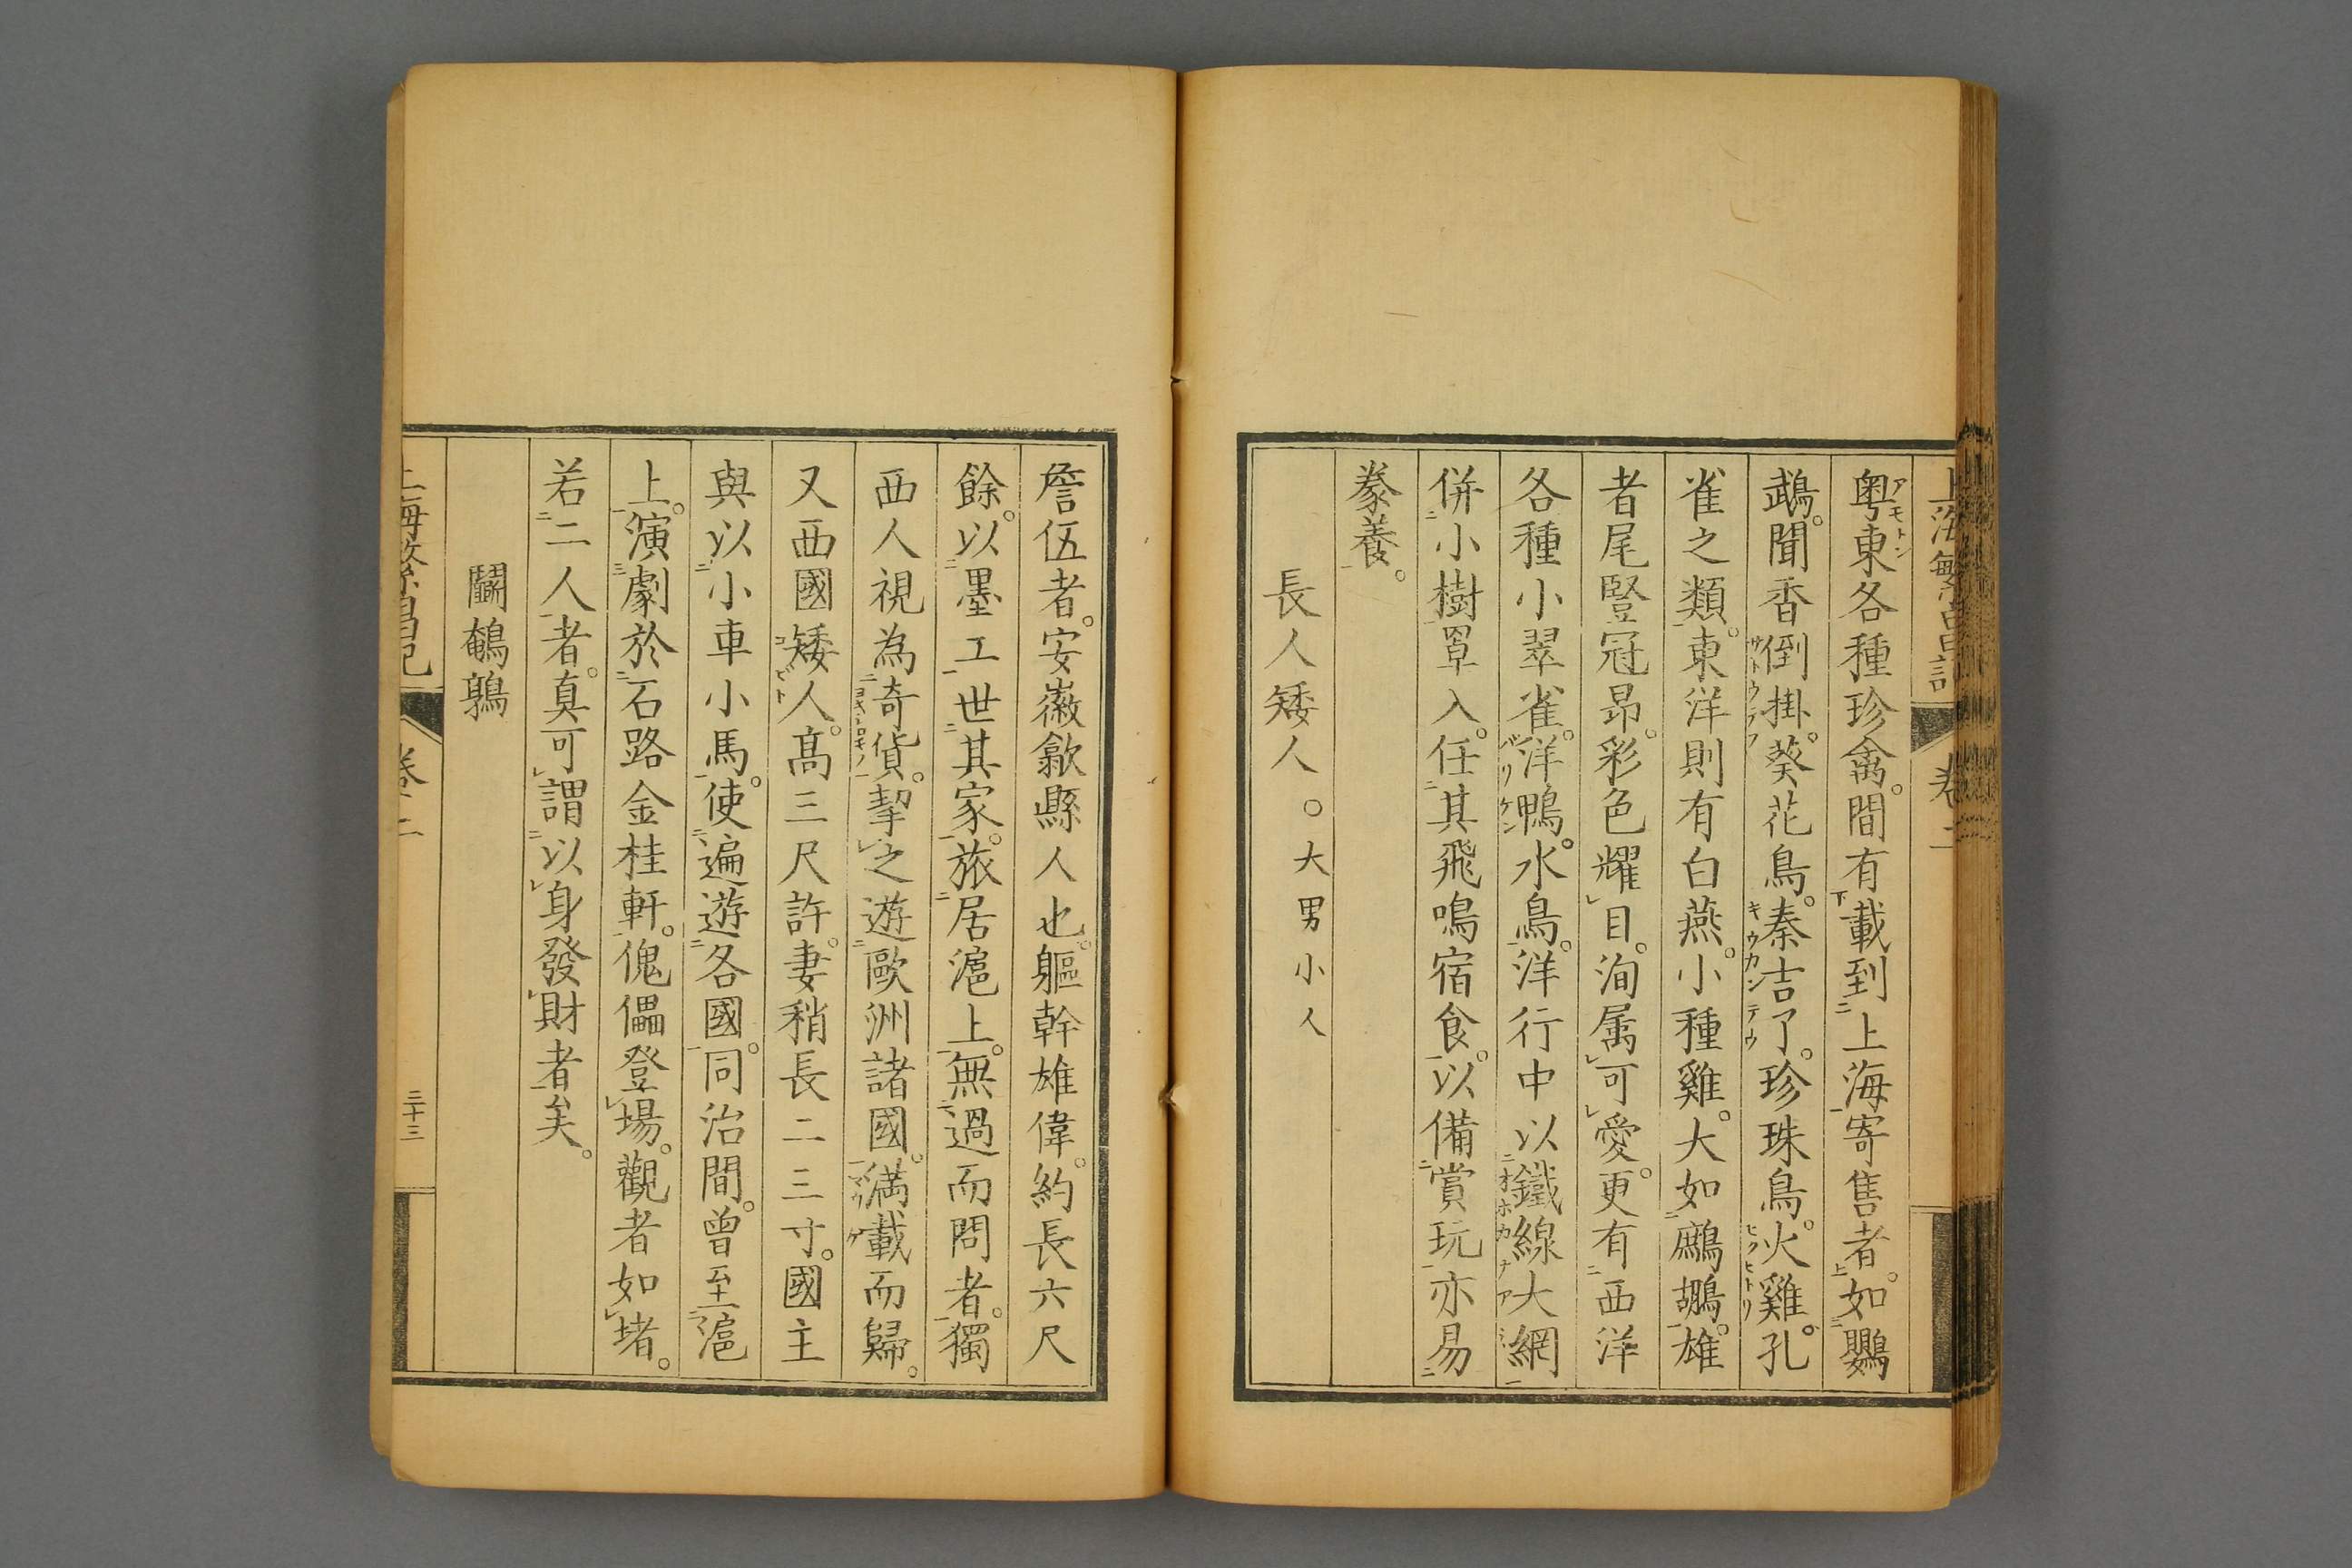 上海繁昌記 卷二
粤東各種珍禽。間有載到上海寄售者。如鸚
鵡。聞香倒掛。葵花鳥。秦吉了。珍珠鳥。火雞。孔
雀之類。東洋則有白燕。小種雞。大如鷓鴣。雄
者尾豎冠昂。彩色耀目。洵属可愛。更有西洋
各種小翠雀。洋鴨。水鳥。洋行中以鐵線大網
併小樹罩入。任其飛鳴宿食。以備賞玩亦易
豢養。
長人矮人。大男小人
詹伍者。安徽歙縣人也。軀幹雄偉。約長六尺
餘。以墨工世其家。旅居滬上。無過而問者。獨
西人視為奇貨。挈之遊歐洲諸國。満載而歸。
又西國矮人。髙三尺許。妻稍長二三寸。國主
與以小車小馬。使遍遊各國。同治間。曾至滬
上。演劇於石路金桂軒。傀儡登場。觀者如堵。
若二人者。真可謂以身發財者矣。
鬭鵪鶉
上海繁昌記 卷二 三十三